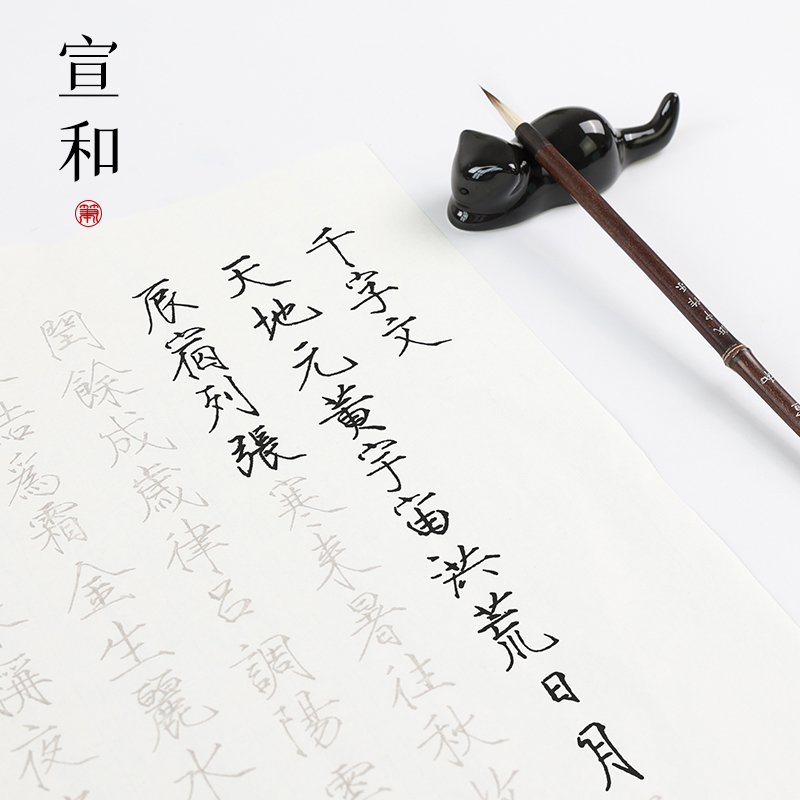 宣和
千字文
天地元黃宇宙洪荒日月
辰宿列張寒来暑往秋
閏餘成歲律呂調陽雲
結為霜金生麗水
稱夜